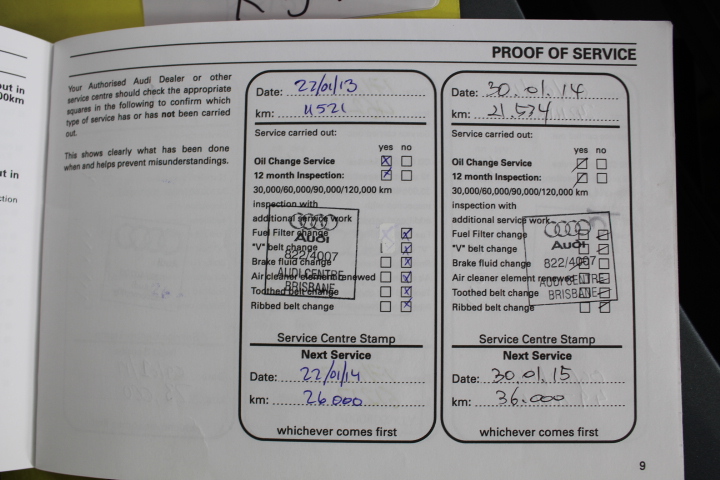 PROOF OF SERVICE
Your Authorised Audi Dealer or other
service centre should check the appropriate
squares in the following to confirm which
type of service has or has not been carried
out.
This shows clearly what has been done
when and helps prevent misunderstandings.
Date: 22/01/13
km: 11521
Service carried out:
yes no
Oil Change Service
12 month Inspection:
30,000/60,000/90,000/120,000 km
inspection with
additional service work
Fuel Filter change
"V" belt change
Brake fluid change
Air cleaner element renewed
Toothed belt change
Ribbed belt change
Audi
822/4007
AUDI CENTRE
BRISBANE
Service Centre Stamp
Next Service
Date: 22/01/14
km: 26.000
whichever comes first
Date: 30.01.14
km: 21.534
Service carried out:
yes no
Oil Change Service
12 month Inspection:
30,000/60,000/90,000/120,000 km
inspection with
additional service work
Fuel Filter change
"V" belt change
Brake fluid change
Air cleaner element renewed
Toothed belt change
Ribbed belt change
Audi
822/4007
AUDI CENTRE
BRISBANE
Service Centre Stamp
Next Service
Date: 30.01.15
km: 36.000
whichever comes first
9